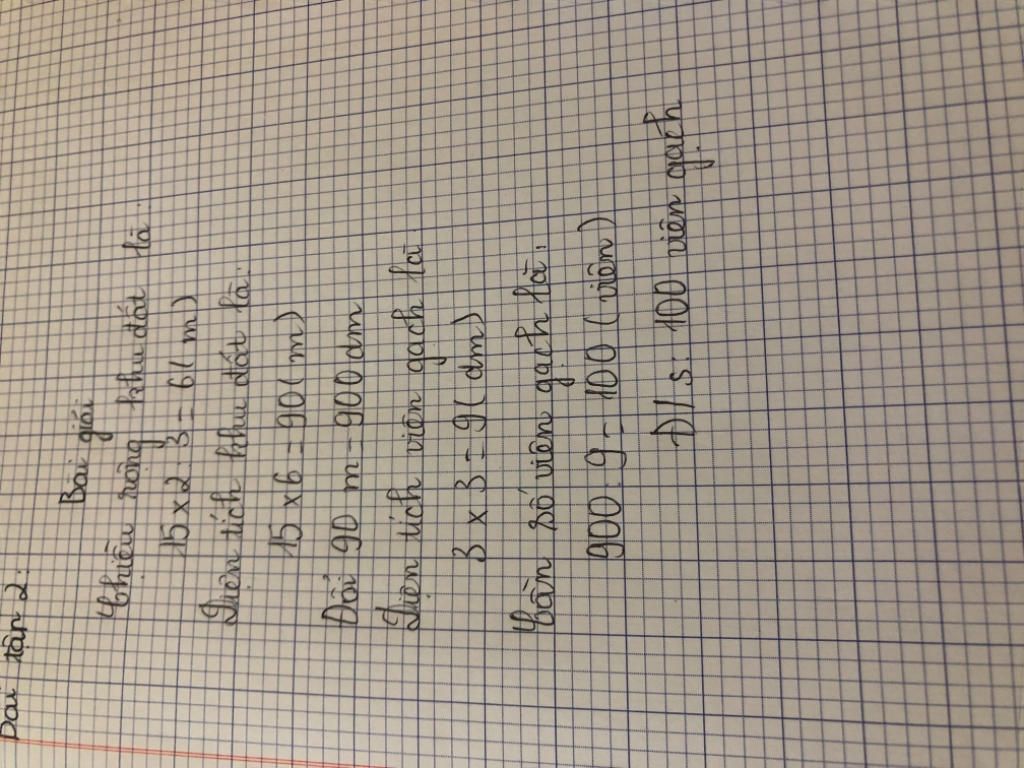 Bài tập 2:
Bài giải
Chiều rộng khu đất là:
15 x 2 : 3 = 6 ( m )
Diện tích khu đất là:
15 x 6 = 90 ( m )
Đổi 90 m = 900 dm
Diện tích viên gạch là:
3 x 3 = 9 ( dm )
Cần số viên gạch là:
900 : 9 = 100 ( viên )
Đ/s: 100 viên gạch